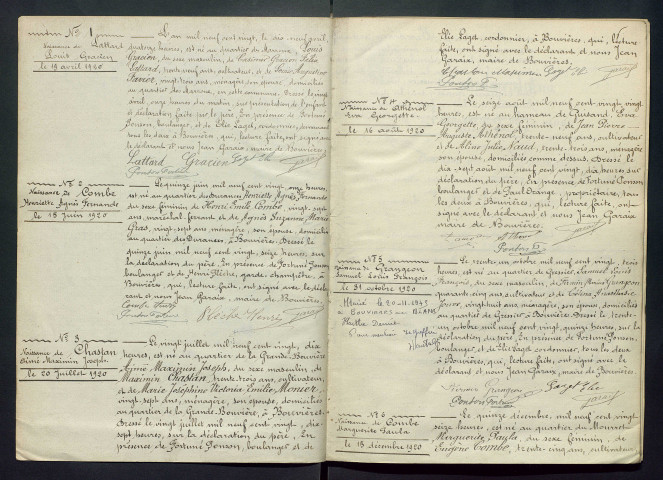 N° 1
Naissance de Lattard
Louis Gracien
le 19 avril 1920
L'an mil neuf cent vingt, le dix-neuf avril,
heures, est né au quartier de Louis
Gracien, du sexe masculin, de
Lattard, trente neuf ans, cultivateur, et de
vingt-trois ans, ménagère, son épouse, domiciliés
au quartier des en cette commune. Dressé le vingt
avril, onze heures du matin, sur présentation de l'enfant
et déclaration faite par le père. En présence de Fortuné
Ponson, boulanger, et de Elie Laget, cordonnier, demeurant
tous les deux à Bouvières, qui, lecture faite, ont signé avec
le déclarant et nous Jean Garaix, maire de Bouvières.
Lattard Gracien Laget Elie
Ponson Fortuné
N° 2
Naissance de Combe
Henriette Agnès Fernande
le 15 juin 1920
Le quinze juin mil neuf cent vingt, onze heures,
est né au quartier Henriette Agnès Fernande
du sexe féminin, de Henri Emile Combe, vingt-sept
ans, maréchal-ferrant, et de Agnès Suzanne Marie
Gras, vingt-sept ans, ménagère, son épouse, domiciliés
au quartier à Bouvières. Dressé le
quinze juin mil neuf cent vingt, seize heures, sur
la déclaration du père. En présence de Fortuné Ponson,
boulanger et de Henri Plèche, garde-champêtre, à
Bouvières, qui, lecture faite, ont signé avec le décla-
rant et nous Jean Garaix, maire de Bouvières.
Combe Henri
Ponson Fortuné Plèche Henri
N° 3
Naissance de Chastan
Aimé Maximin Joseph
le 20 Juillet 1920
Le vingt juillet mil neuf cent vingt, dix
heures, est né au quartier de la Grande Bouvière
Aimé Maximin Joseph, du sexe masculin, de
Maximin Chastan, trente-trois ans, cultivateur,
et de Marie Joséphine Victoria Emilie Monier,
vingt-sept ans, ménagère, son épouse, domiciliés
au quartier de la Grande Bouvière, à Bouvières.
Dressé le vingt juillet mil neuf cent vingt, dix-
sept heures, sur la déclaration du père. En
présence de Fortuné Ponson, boulanger et de
Elie Laget, cordonnier, à Bouvières, qui, lecture
faite, ont signé avec le déclarant et nous Jean
Garaix, maire de Bouvières.
Chastan Maximin Laget E
Ponson F.
N° 4
Naissance de Athénol
Eva Georgette
le 16 août 1920
Le seize août mil neuf cent vingt, vingt
heures, est né au hameau de Guisand, Eva
Georgette, du sexe féminin, de Jean Pierre
Auguste Athénol, trente-neuf ans, cultivateur
et de Aline Julie Naud, trente-trois ans, ménagère
son épouse, domiciliés comme dessus. Dressé le
dix-sept août mil neuf cent vingt, dix heures, sur
déclaration du père. En présence de Fortuné Ponson
boulanger et de Paul propriétaire, tous
les deux à Bouvières, qui, lecture faite, ont
signé avec le déclarant et nous Jean Garaix
maire de Bouvières.
Athénol
Ponson F.
N° 5
Naissance de Grangeon
Samuel Louis François
le 31 octobre 1920
Marié le 20-11-1943
à Bouvières
Le trente-un octobre mil neuf cent vingt, trois
heures, est né au quartier de Samuel Louis
François, du sexe masculin, de Firmin Grangeon
quarante-cinq ans, cultivateur et de
vingt-huit ans, ménagère, son épouse, domiciliés
au quartier de à Bouvières. Dressé le trente-
un octobre mil neuf cent vingt, quinze heures, sur la
déclaration du père. En présence de Fortuné Ponson,
boulanger, et de Elie Laget, cordonnier, tous les deux
à Bouvières, qui, lecture faite, ont signé avec le
déclarant et nous Jean Garaix, maire de Bouvières.
Grangeon Laget Elie
Ponson Fortuné
N° 6
Naissance de Combe
Marguerite Paula
le 15 décembre 1920
Le quinze décembre, mil neuf cent vingt
seize heures, est né au quartier du
Marguerite Paula, du sexe féminin, de
Eugène Combe, trente-cinq ans, cultivateur,